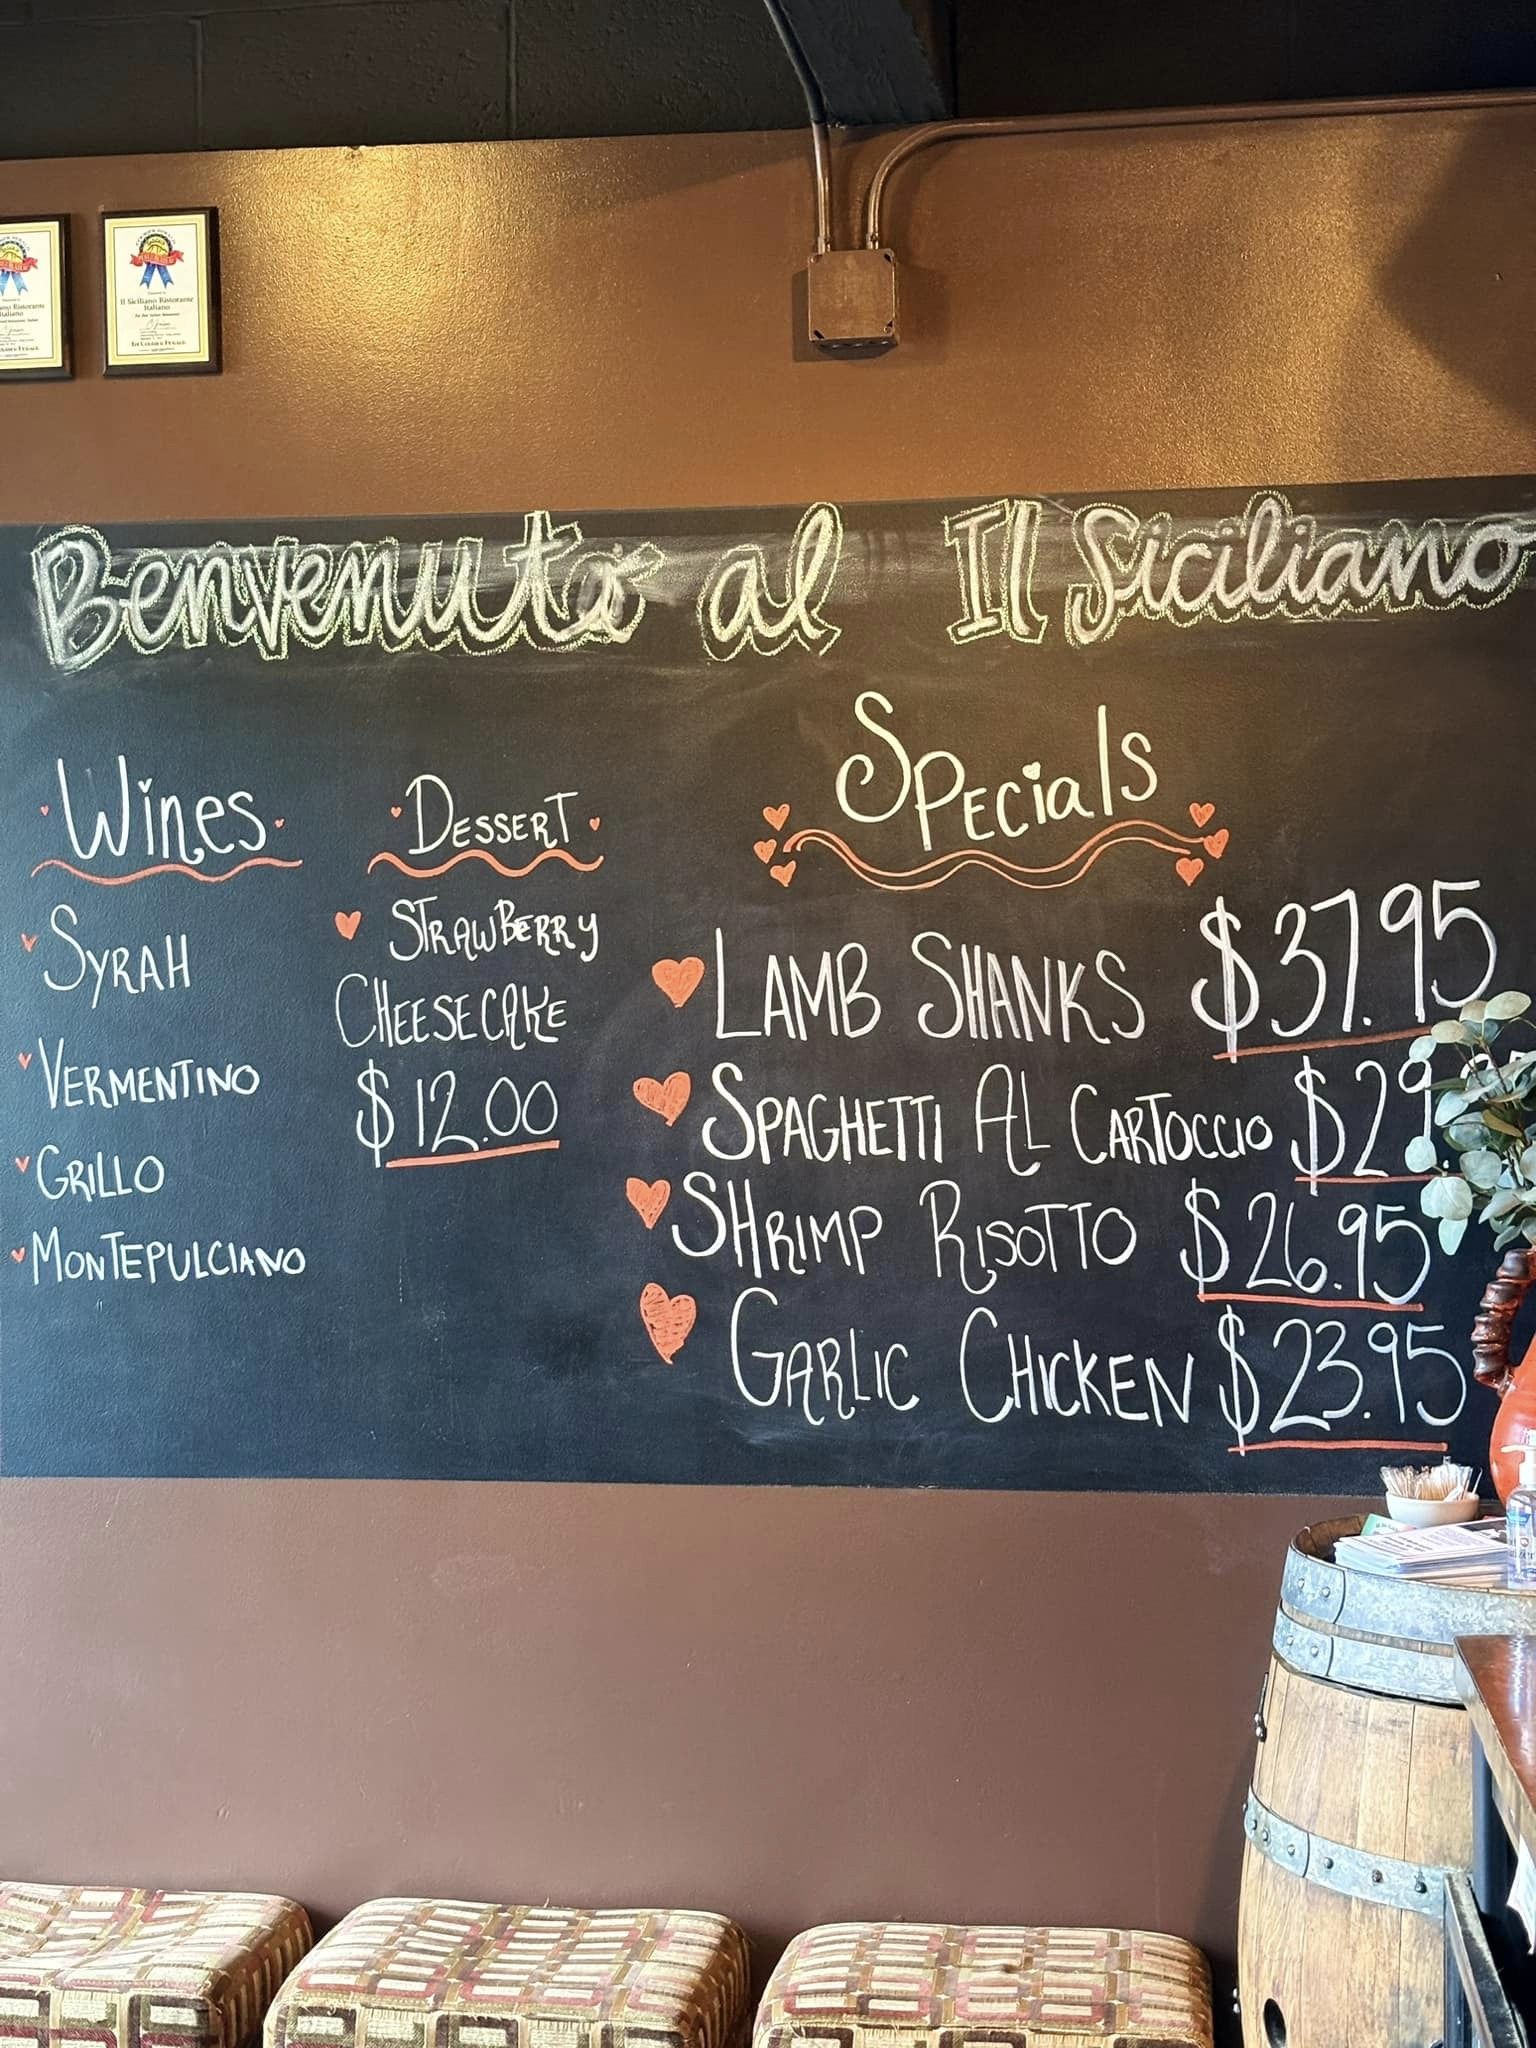 Il Siciliano Ristorante
Italiano
Benvenuto al Il Siciliano
Wines
Syrah
Vermentino
Grillo
Montepulciano
Dessert
Strawberry
Cheesecake
$12.00
Specials
Lamb Shanks $37.95
Spaghetti Al Cartoccio $29.
Shrimp Risotto $26.95
Garlic Chicken $23.95